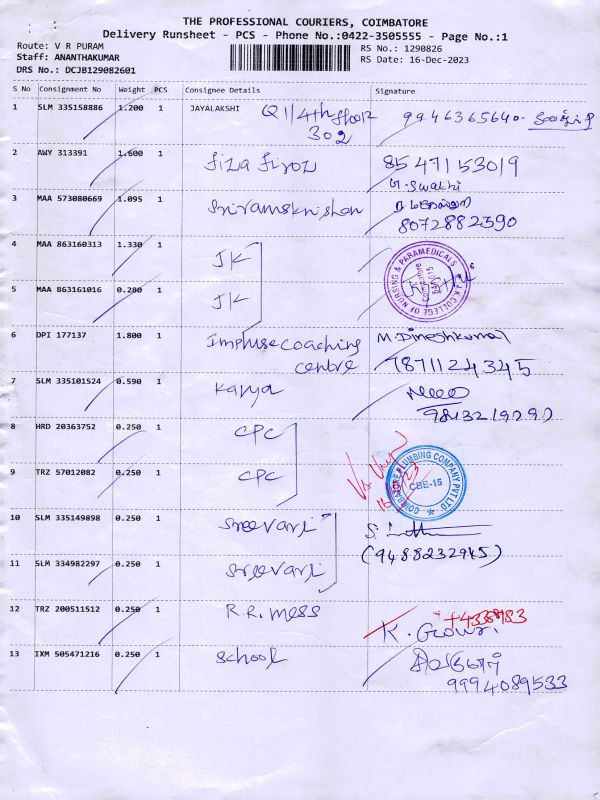 THE PROFESSIONAL COURIERS, COIMBATORE
Delivery Runsheet - PCS - Phone No.:0422-3505555 - Page No.:1
Route: V R PURAM
RS No.: 1290826
Staff: ANANTHAKUMAR
RS Date: 16-Dec-2023
DRS No.: DCJB129082601
S No Consignment No Weight PCS Consignee Details Signature
1 SLM 335158886 1.200 1 JAYALAKSHI Q1/4th floor 9946365640-
302
2 AWY 313391 1.600 1 fiza firoz 8547153019
G. Swathi
3 MAA 573080669 1.095 1 Sriramskrishan
8072882590
4 MAA 863160313 1.330 1 JK
J.K COLLEGE OF NURSING & PARAMEDICALS
5 MAA 863161016 0.280 1 JK
6 DPI 177137 1.800 1 Impluse coaching M. Dineshkumar
centre 7871124345
7 SLM 335101524 0.590 1 Kavya
8 HRD 20363752 0.250 1 CPC
COIMBATORE PLUMBING COMPANY PVT LTD
CBE-15
9 TRZ 57012082 0.250 1 CPC
10 SLM 335149898 0.250 1 Sreevari
(9488232945)
11 SLM 334982297 0.250 1 Sreevari
12 TRZ 200511512 0.250 1 R.R. mess
K. Gowri
13 IXM 505471216 0.250 1 School
9994089533